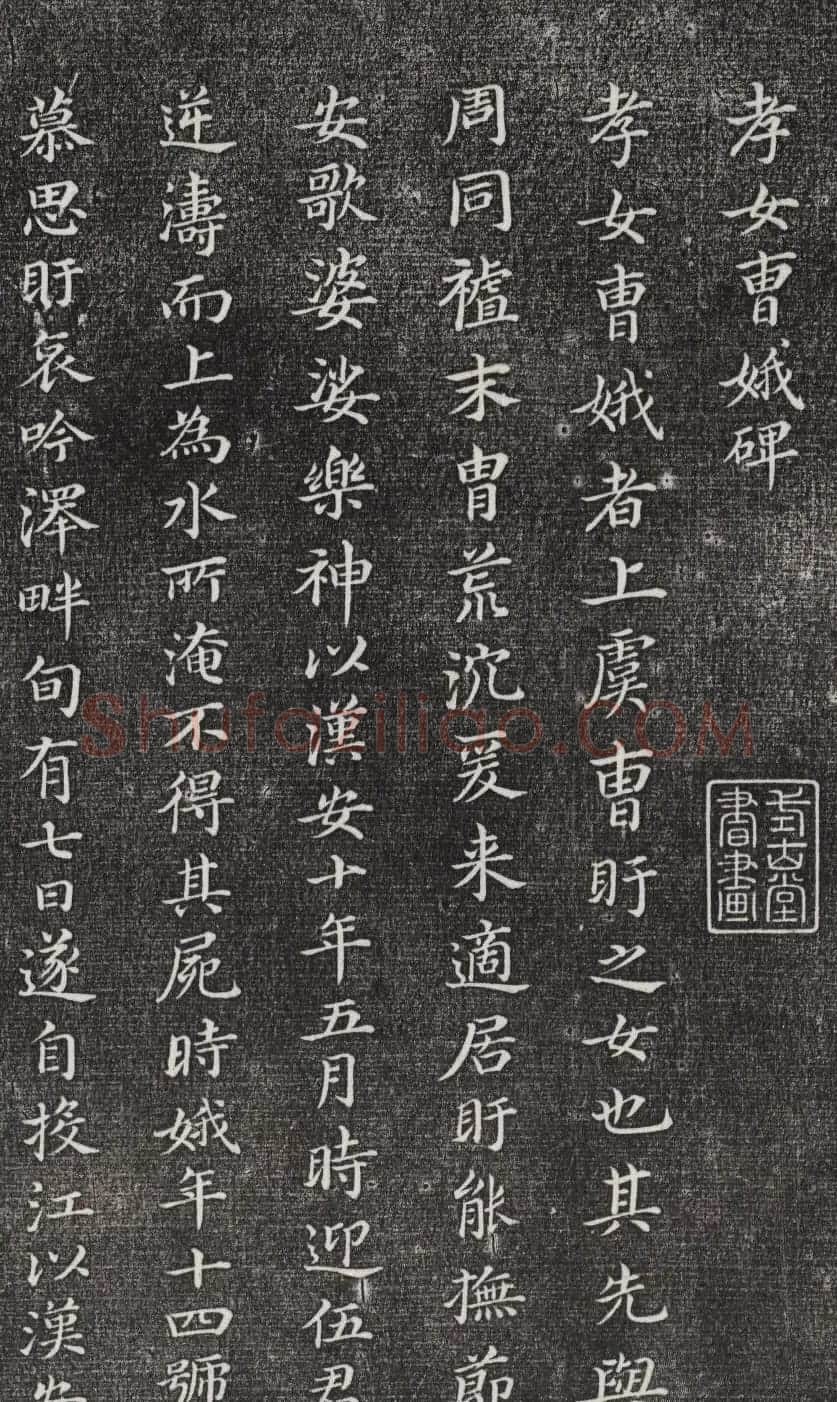 孝女曹娥碑
古堂
書畫
孝女曹娥者上虞曹盱之女也其先與
周同䄍末胄荒沈爰来適居盱能撫節
安歌婆娑樂神以漢安十年五月時迎伍君
逆濤而上為水所淹不得其屍時娥年十四號
慕思盱哀吟澤畔旬有七日遂自投江以漢安
Shufaziliao.COM